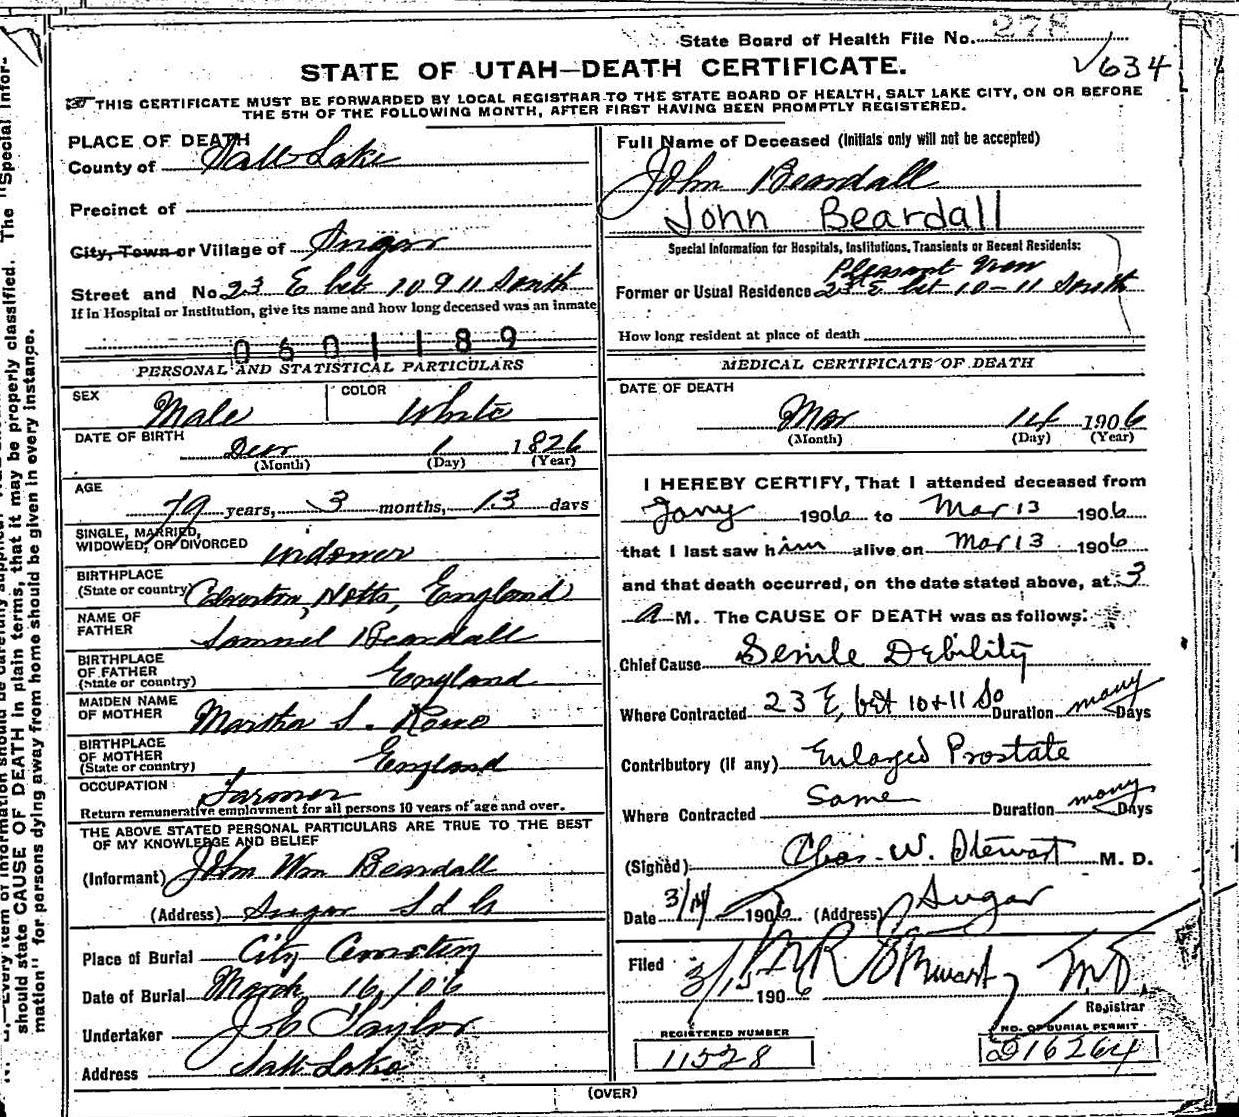 State Board of Health File No. 278
634
STATE OF UTAH—DEATH CERTIFICATE.
THIS CERTIFICATE MUST BE FORWARDED BY LOCAL REGISTRAR TO THE STATE BOARD OF HEALTH, SALT LAKE CITY, ON OR BEFORE
THE 5TH OF THE FOLLOWING MONTH, AFTER FIRST HAVING BEEN PROMPTLY REGISTERED.
PLACE OF DEATH
County of Salt Lake
Precinct of
City, Town or Village of Sugar
Street and No 23 E bet 10 & 11 South
If in Hospital or Institution, give its name and how long deceased was an inmate
0601189
PERSONAL AND STATISTICAL PARTICULARS
SEX Male COLOR White
DATE OF BIRTH
Decr 1 1826
(Month) (Day) (Year)
AGE
79 years, 3 months, 13 days
SINGLE, MARRIED,
WIDOWED, OR DIVORCED Widower
BIRTHPLACE
(State or country) Calverton, Notts, England
NAME OF
FATHER Samuel Beardall
BIRTHPLACE
OF FATHER
(State or country) England
MAIDEN NAME
OF MOTHER Martha S. Rowe
BIRTHPLACE
OF MOTHER
(State or country) England
OCCUPATION Farmer
Return remunerative employment for all persons 10 years of age and over.
THE ABOVE STATED PERSONAL PARTICULARS ARE TRUE TO THE BEST
OF MY KNOWLEDGE AND BELIEF
(Informant) John Wm Beardall
(Address) Sugar
Place of Burial City Cemetery
Date of Burial March 16, 106
Undertaker Taylor
Address Salt Lake
Full Name of Deceased (Initials only will not be accepted)
John Beardall
John Beardall
Special Information for Hospitals, Institutions, Transients or Recent Residents:
Pleasant View
Former or Usual Residence 23 E bet 10-11 South
How long resident at place of death
MEDICAL CERTIFICATE OF DEATH
DATE OF DEATH
Mar 14 1906
(Month) (Day) (Year)
I HEREBY CERTIFY, That I attended deceased from
Jany 1906 to Mar 13 1906
that I last saw him alive on Mar 13 1906
and that death occurred, on the date stated above, at 3
a M. The CAUSE OF DEATH was as follows:
Chief Cause Senile Debility
Where Contracted 23 E, bet 10 & 11 So Duration many Days
Contributory (if any) Enlaged Prostate
Where Contracted Same Duration many Days
(Signed) Chas. W. Stewart M. D.
Date 3/14 1906 (Address) Sugar
Filed 3/15 1906 Stewart MD
Registrar
REGISTERED NUMBER
11528
NO. OF BURIAL PERMIT
D16264
(OVER)
should state CAUSE OF DEATH in plain terms, that it may be properly classified. The "Special Infor-
mation" for persons dying away from home should be given in every instance.